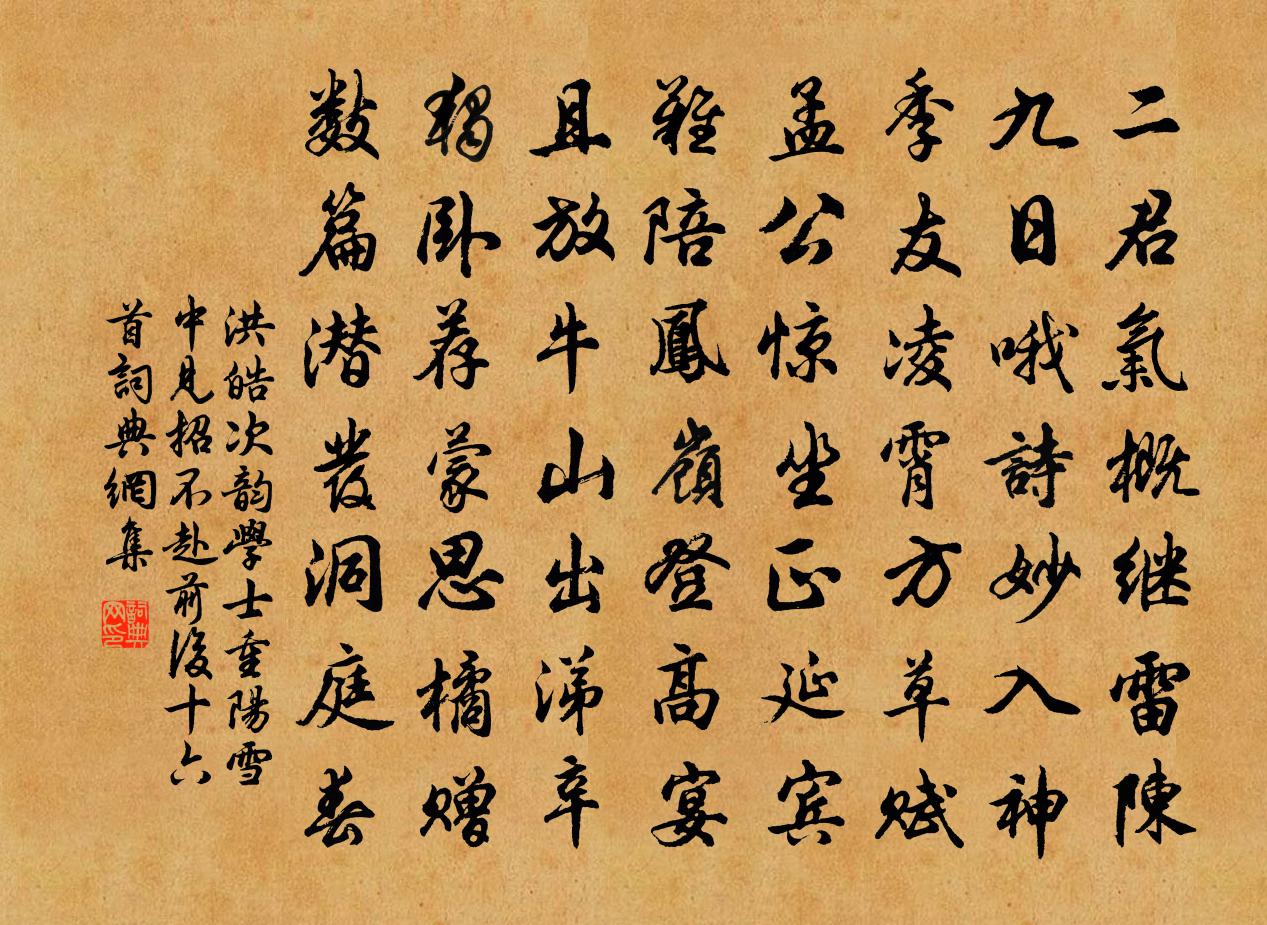 二君氣概继雷陳
九日哦詩妙入神
季友凌霄方草赋
孟公惊坐正延宾
难陪鳳嶺登高宴
且放牛山出涕辛
独卧荐蒙思橘赠
数篇潜發洞庭春
洪皓次韵學士重陽雪
中見招不赴前後十六
首詞典網集
詞典网印